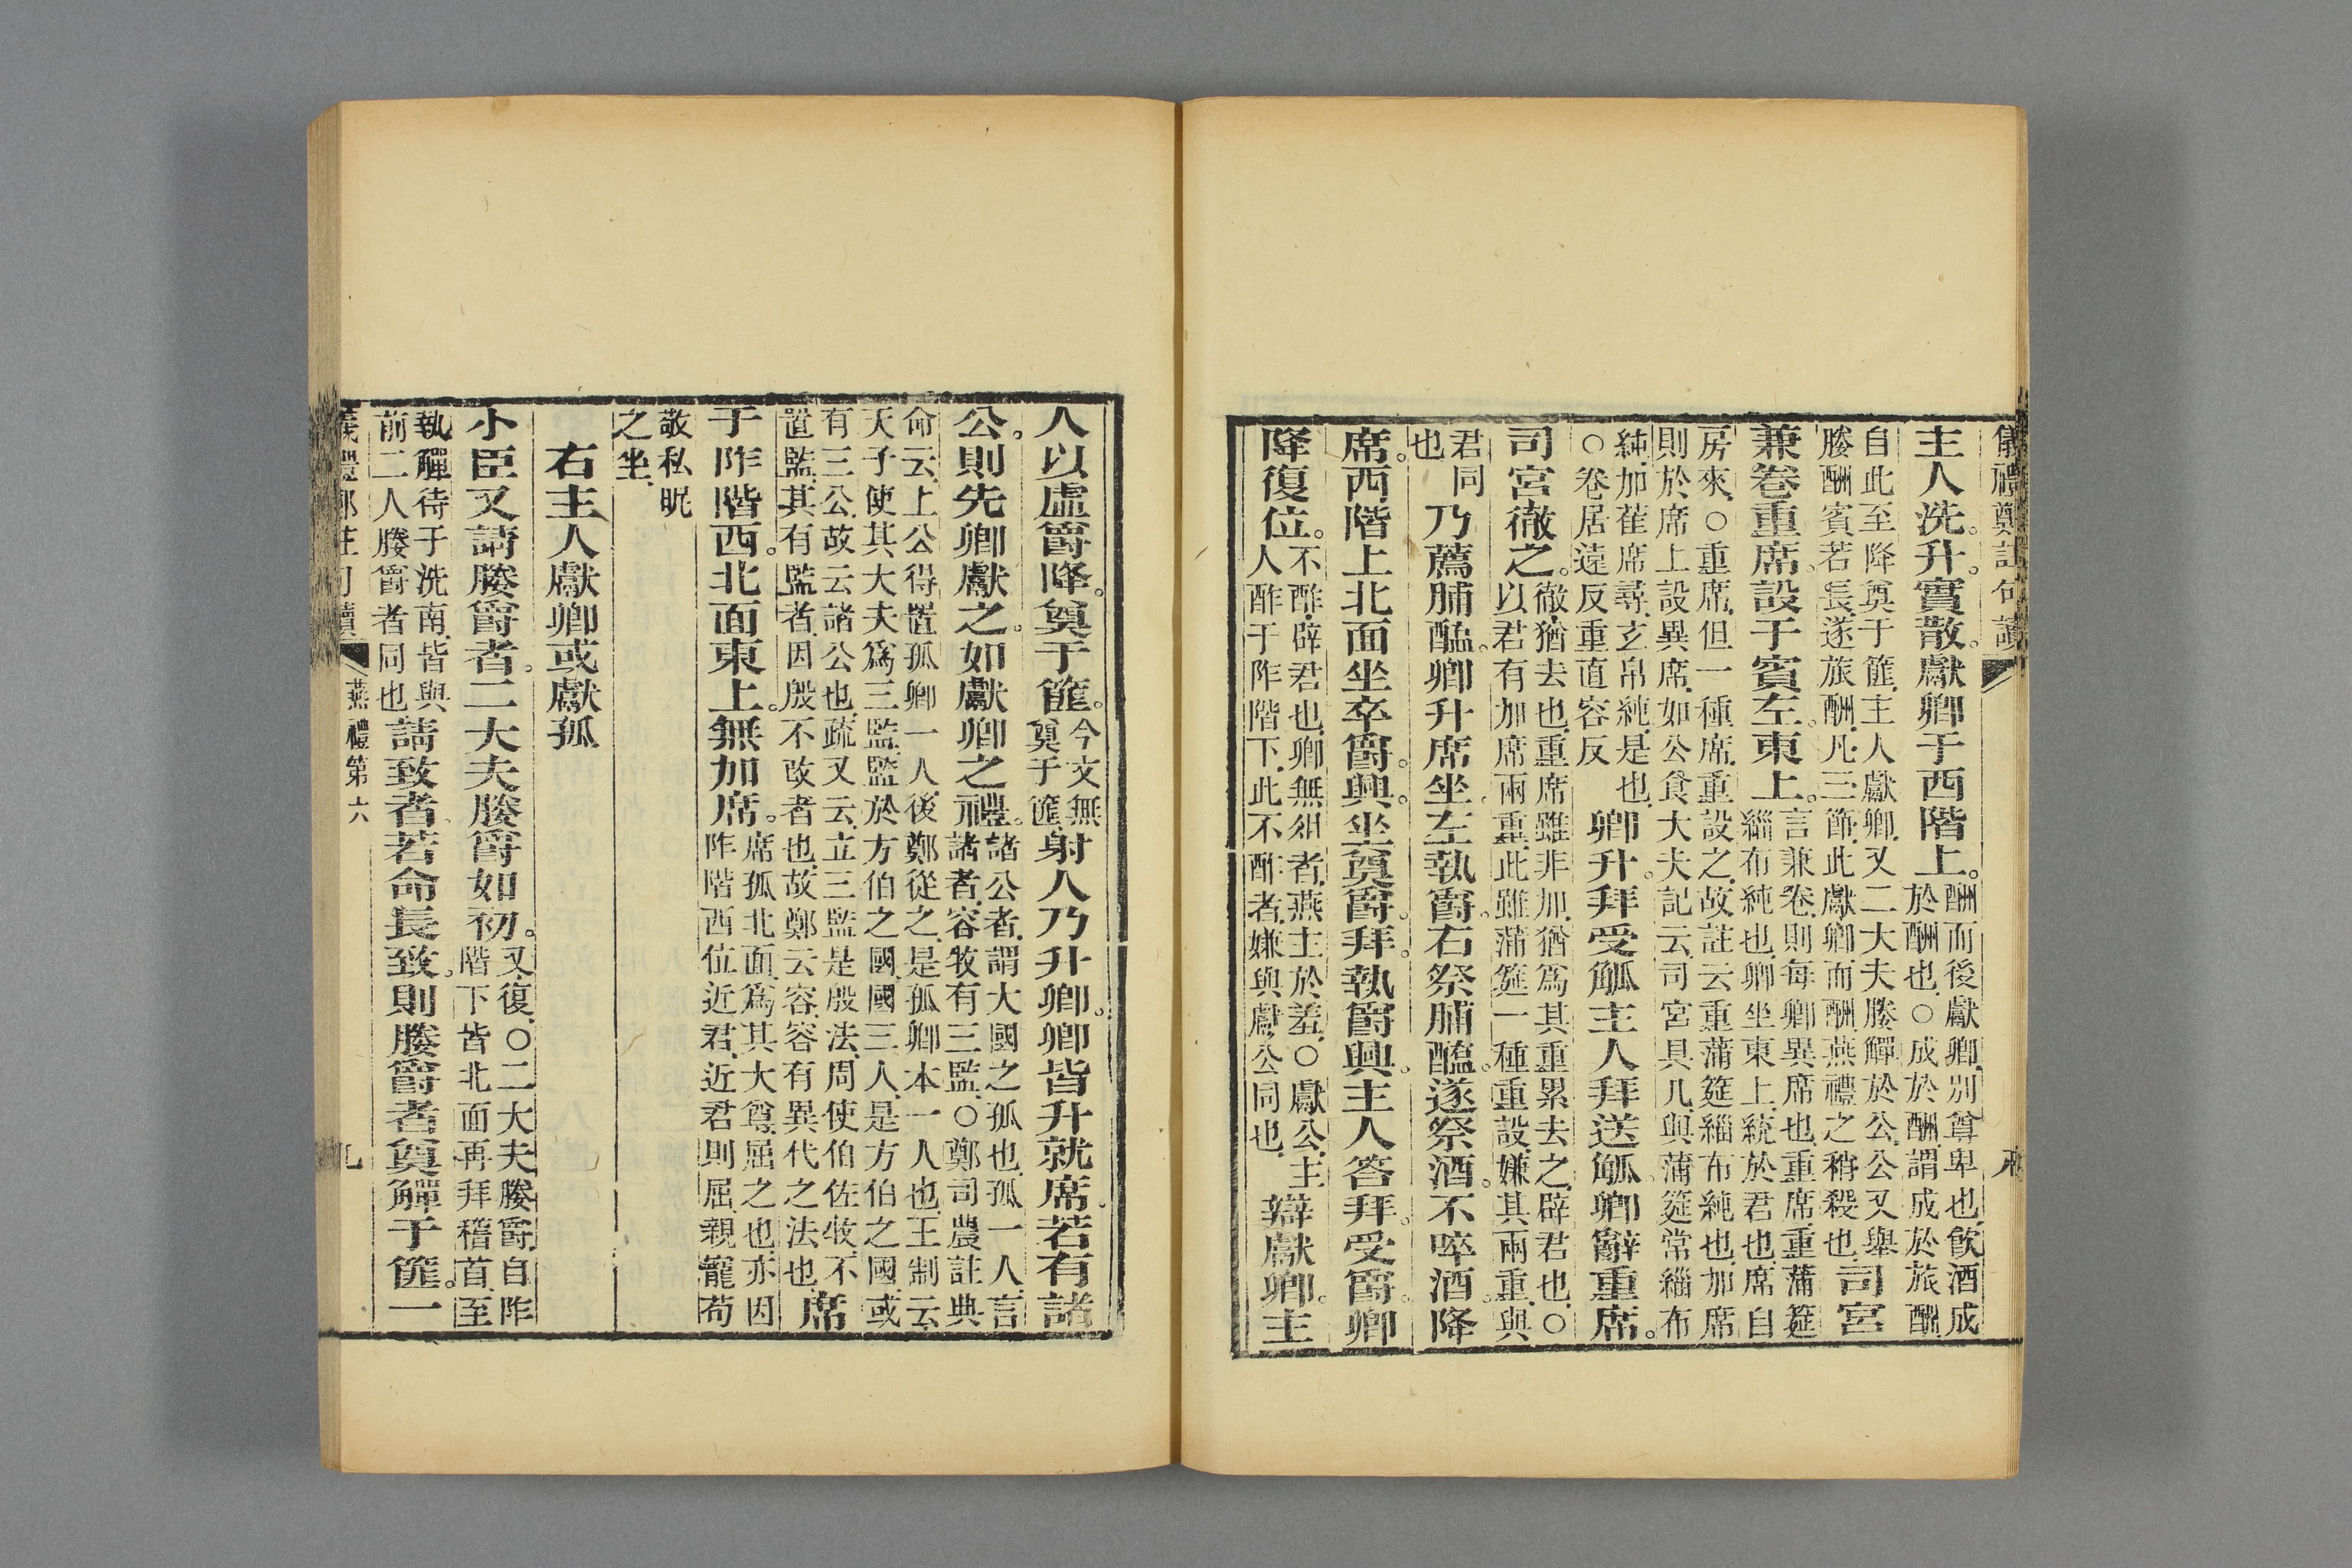 儀禮鄭註句讀
主人洗。升。實散。獻卿于西階上。
酬而後獻卿別尊卑也飲酒成
於酬也○成於酬謂成於旅酬
自此至降奠于篚主人獻卿又二大夫媵觶於公公又舉
媵酬賓若長遂旅酬凡三節此獻卿而酬燕禮之稍殺也
司宮
兼卷重席。設于賓左。東上。
言兼卷則每卿異席也重席重蒲筵
緇布純也卿坐東上統於君也席自
房來○重席但一種席重設之故註云重蒲筵緇布純也加席
則於席上設異席如公食大夫記云司宮具几與蒲筵常緇布
純加萑席尋玄帛純是也
○卷居遠反重直容反
卿升。拜受觚主人拜送觚卿辭重席。
司宮徹之。
徹猶去也重席雖非加猶爲其重累去之辟君也○
以君有加席兩重此雖蒲筵一種重設嫌其兩重與
君同
也
乃薦脯醢。卿升席坐。左執爵。右祭脯醢。遂祭酒。不啐酒。降
席。西階上北面坐卒爵。興。坐奠爵。拜。執爵興。主人答拜。受爵。卿
降復位。
不酢辟君也卿無俎者燕主於羞○獻公主
人酢于阼階下此不酢者嫌與獻公同也
辯獻卿。主
人以虛爵降。奠于篚。
今文無
奠于篚
射人乃升卿。卿皆升就席。若有諸
公。則先卿獻之。如獻卿之禮。
諸公者謂大國之孤也孤一人言
諸者容牧有三監○鄭司農註典
命云上公得置孤卿一人後鄭從之是孤卿本一人也王制云
天子使其大夫爲三監監於方伯之國國三人是方伯之國或
有三公故云諸公也疏又云立三監是殷法周使伯佐牧不
置監其有監者因殷不改者也故鄭云容容有異代之法也
席
于阼階西。北面東上。無加席。
席孤北面爲其大尊屈之也亦因
阼階西位近君近君則屈親寵苟
敬私昵
之坐
右主人獻卿或獻孤
小臣又請媵爵者。二大夫媵爵如初。
又復○二大夫媵爵自阼
階下皆北面再拜稽首至
執觶待于洗南皆與
前二人媵爵者同也
請致者。若命長致。則媵爵者奠觶于篚。一
儀禮鄭註句讀
燕禮第六
九